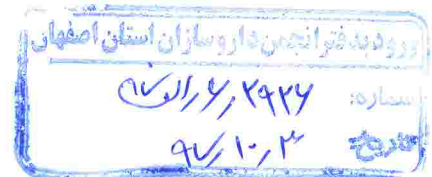 ورود به دفتر انجمن داروسازان استان اصفهان
شماره: ۲۹۲۶
تاریخ: ۹۷٫۱۰٫۳